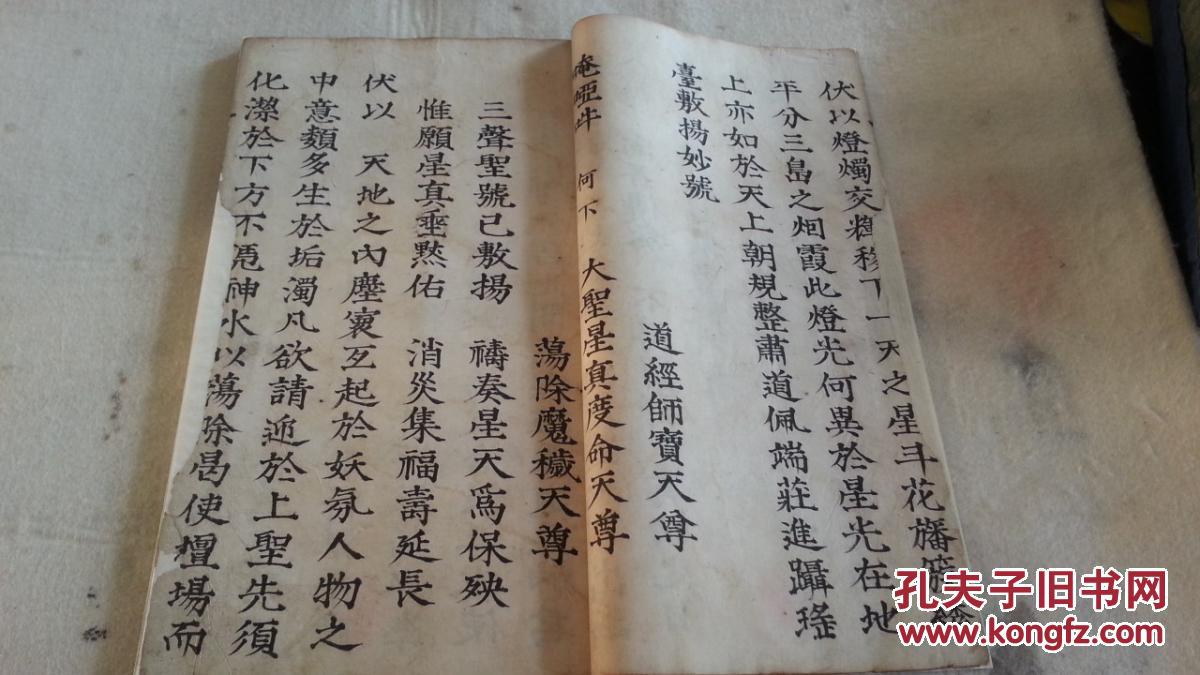 伏以燈燭交輝移下一天之星斗花旛
平分三島之烟霞此燈光何異於星光在地
上亦如於天上朝規整肅道佩端莊進躡瑤
臺敷揚妙號
道經師寶天尊
唵啞吽 何下 大聖星真度命天尊
蕩除魔穢天尊
三聲聖號已敷揚 禱奏星天爲保殃
惟願星真垂黙佑 消災集福壽延長
伏以 天地之內塵寰互起於妖氛人物之
中意類多生於垢濁凡欲請迎於上聖先須
化潔於下方不凴神水以蕩除曷使壇場而
孔夫子旧书网
www.kongfz.com